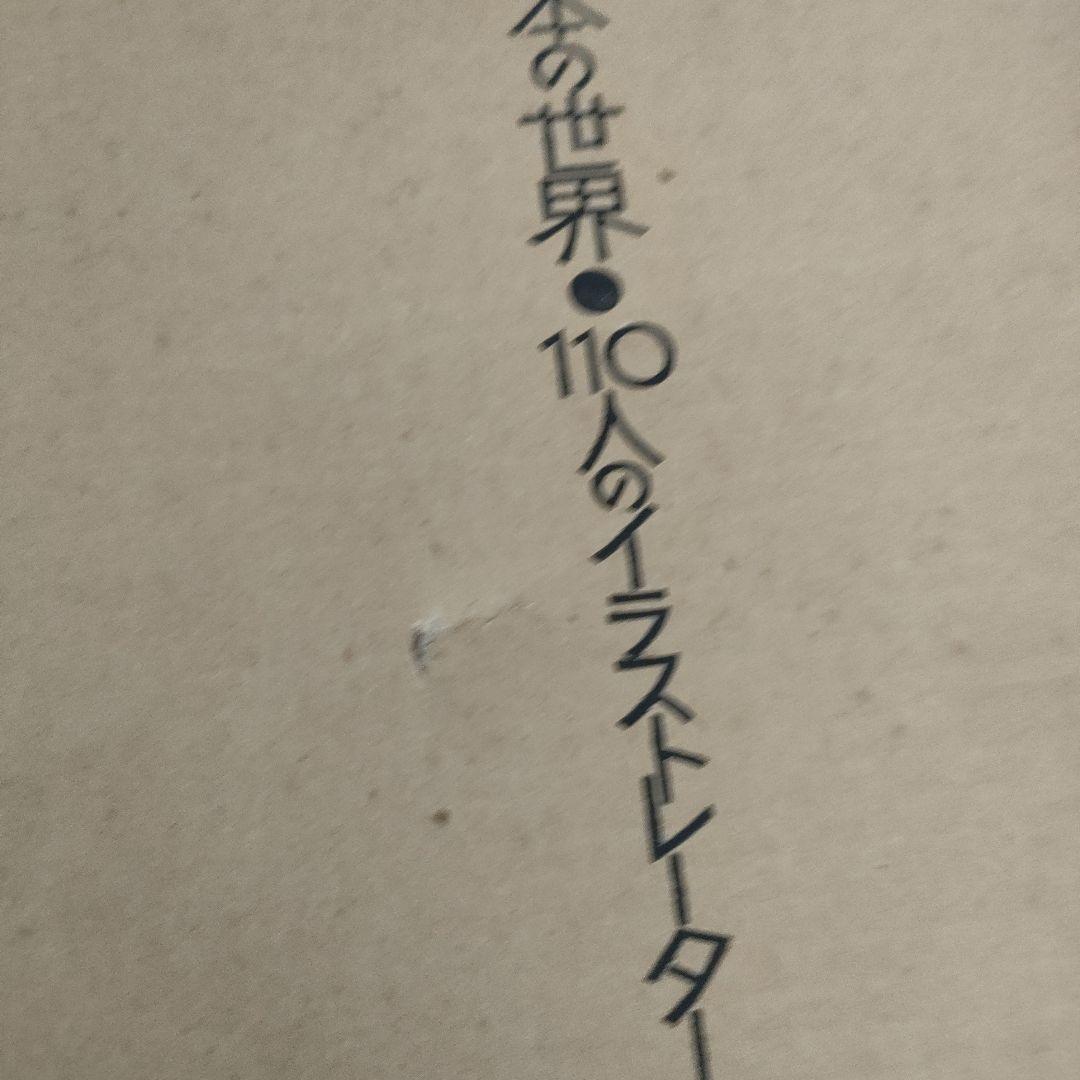 の世界●110人のイラストレーター